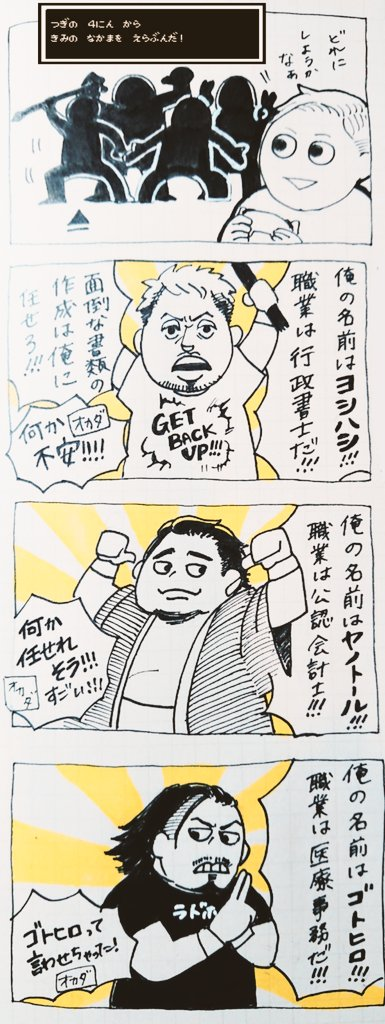 つぎの 4にん から
きみの なかまを えらぶんだ!
どれに
しようか
なぁ
俺の名前はヨシハシ!!!
職業は行政書士だ!!!
GET
BACK
UP!!!
面倒な書類の
作成は俺に
任せろ!!!
何か
不安!!!!
オカダ
俺の名前はヤノトール!!!
職業は公認会計士!!!
何か
任せれ
そう!!!
すごい!!!
オカダ
俺の名前はゴトヒロ!!!
職業は医療事務だ!!!
ラドホ
ゴトヒロって
言わせちゃった!
オカダ